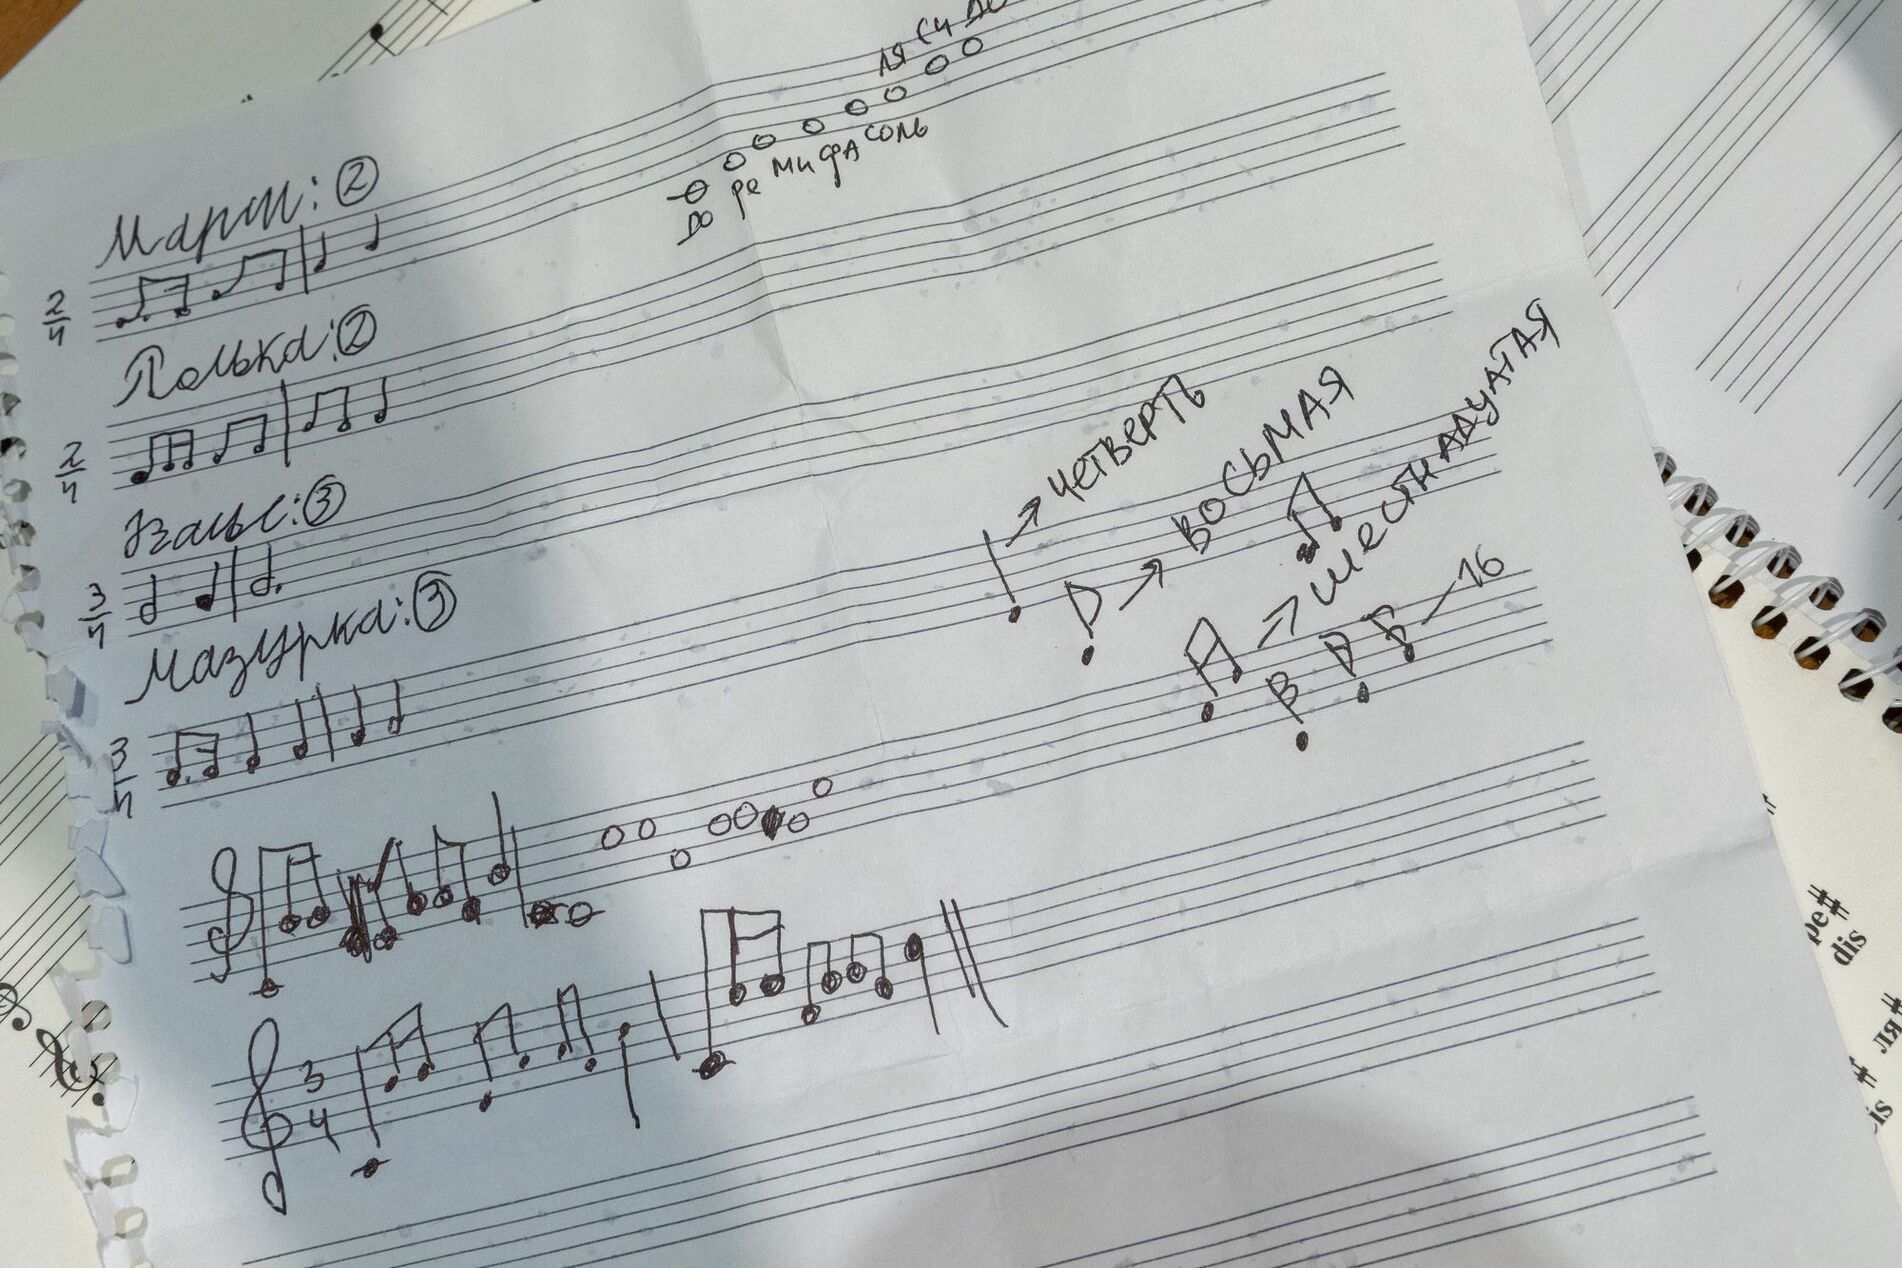 ля си до
до ре ми фа соль
Марш: ②
2/4
Полька: ②
2/4
Вальс: ③
3/4
Мазурка: ③
3/4
→ четверть
→ восьмая
→ шестнадцатая
16
3/4
ре#
dis
ля#
is